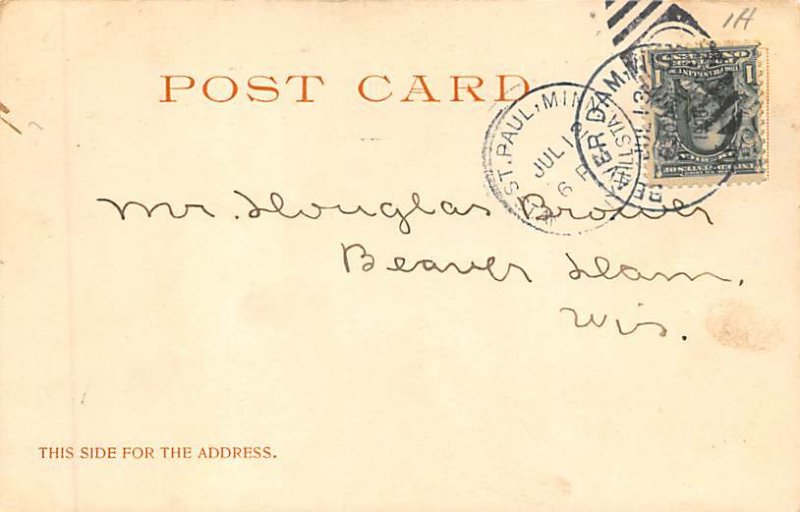 1H
POST CARD
ST. PAUL, MINN.
JUL 12
6 P
BEAVER DAM, WIS.
JUL 13
Mr. Douglas Brower
Beaver Dam,
Wis.
THIS SIDE FOR THE ADDRESS.